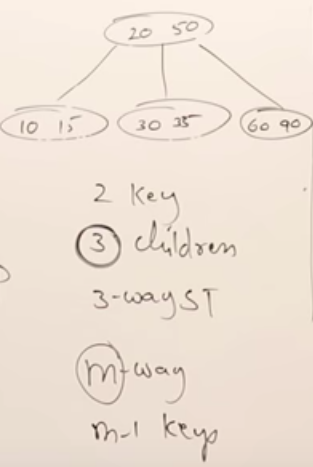 20 50
10 15 30 35 60 90
2 Key
3 children
3-way ST
m-way
m-1 keys